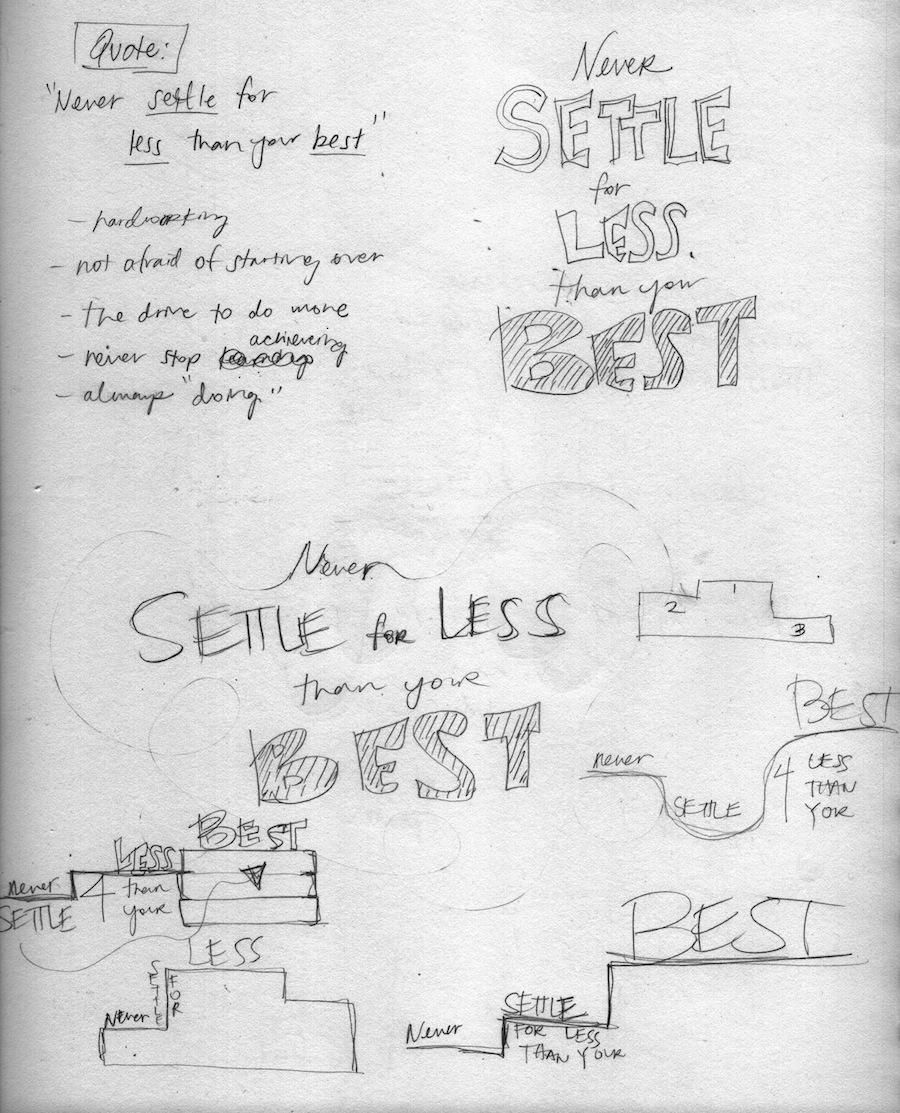 Quote:
"Never settle for
less than your best"
- hardworking
- not afraid of starting over
- the drive to do more
- never stop achieving
- always "doing"
Never
SETTLE
for
LESS.
than your
BEST
Never
SETTLE for LESS
than your
BEST
1
2
3
BEST
never
SETTLE
4 LESS
THAN
YOR
BEST
LESS
never
SETTLE
4 than
your
LESS
SETTLE
FOR
Never
BEST
SETTLE
Never
FOR LESS
THAN YOUR